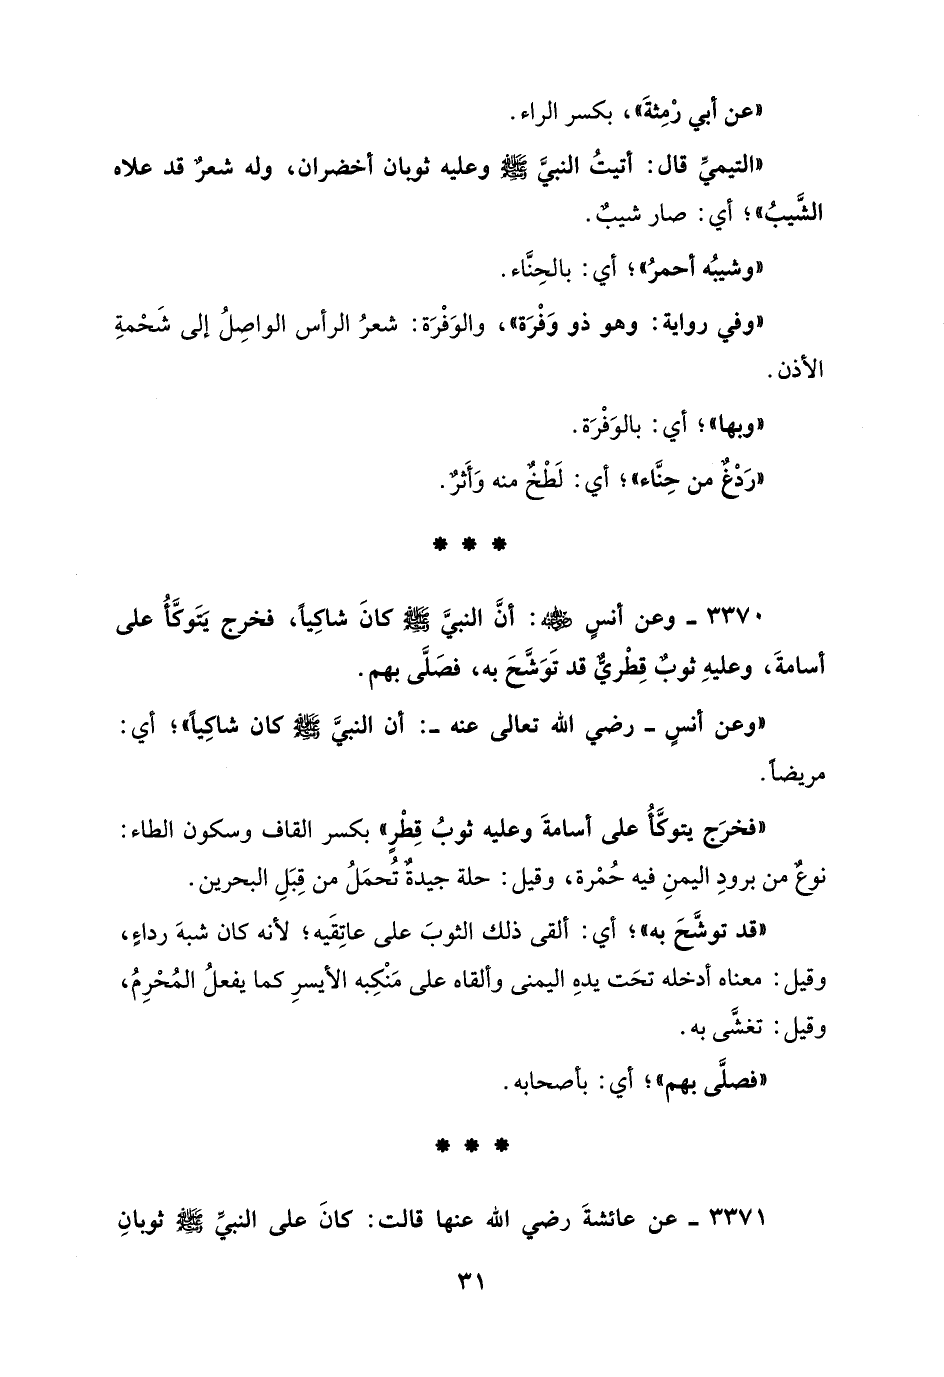 «عن أبي رْمِثةَ»، بكسر الراء.
«التيميِّ قال: أتيتُ النبيَّ ﷺ وعليه ثوبان أخضران، وله شعرٌ قد علاه
الشَّيبُ»؛ أي: صار شيبٌ.
«وشيبُه أحمرُ»؛ أي: بالحِنَّاء.
«وفي رواية: وهو ذو وَفْرَة»، والوَفْرَة: شعرُ الرأس الواصِلُ إلى شَحْمةِ
الأذن.
«وبها»؛ أي: بالوَفْرَة.
«رَدْغٌ من حِنَّاء»؛ أي: لَطْخٌ منه وَأَثرٌ.
* * *
٣٣٧٠ ـ وعن أنسٍ ﷺ: أنَّ النبيَّ ﷺ كانَ شاكِياً، فخرج يَتَوكَّأُ على
أسامةَ، وعليهِ ثوبٌ قِطْريٌّ قد تَوَشَّحَ به، فصَلَّى بهم.
«وعن أنسٍ ـ رضي الله تعالى عنه ـ: أن النبيَّ ﷺ كان شاكِياً»؛ أي:
مريضاً.
«فخرَج يتوكَّأُ على أسامةَ وعليه ثوبُ قِطْرٍ» بكسر القاف وسكون الطاء:
نوعٌ من برودِ اليمنِ فيه حُمْرة، وقيل: حلة جيدةٌ تُحمَلُ من قِبَلِ البحرين.
«قد توشَّحَ به»؛ أي: ألقى ذلك الثوبَ على عاتِقَيه؛ لأنه كان شبهَ رداءٍ،
وقيل: معناه أدخله تحَت يدهِ اليمنى وألقاه على مَنْكِبه الأيسرِ كما يفعلُ المُحْرِمُ،
وقيل: تغشَّى به.
«فصلَّى بهم»؛ أي: بأصحابه.
* * *
٣٣٧١ ـ عن عائشةَ رضي الله عنها قالت: كانَ على النبيِّ ﷺ ثوبانِ
٣١